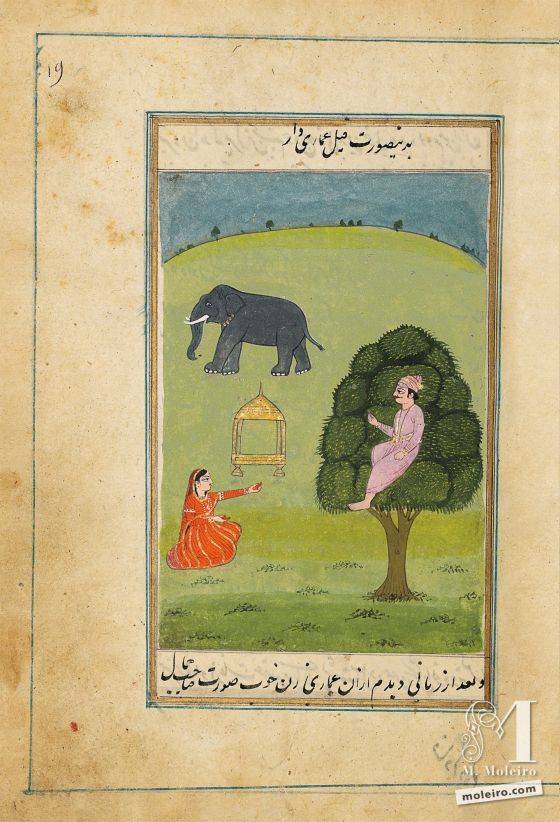 19
بدینصورت فیل عماری دار
و بعد از زمانی دیدم از ان عماری زن خوب صورت صاحب
M
M. Moleiro
moleiro.com